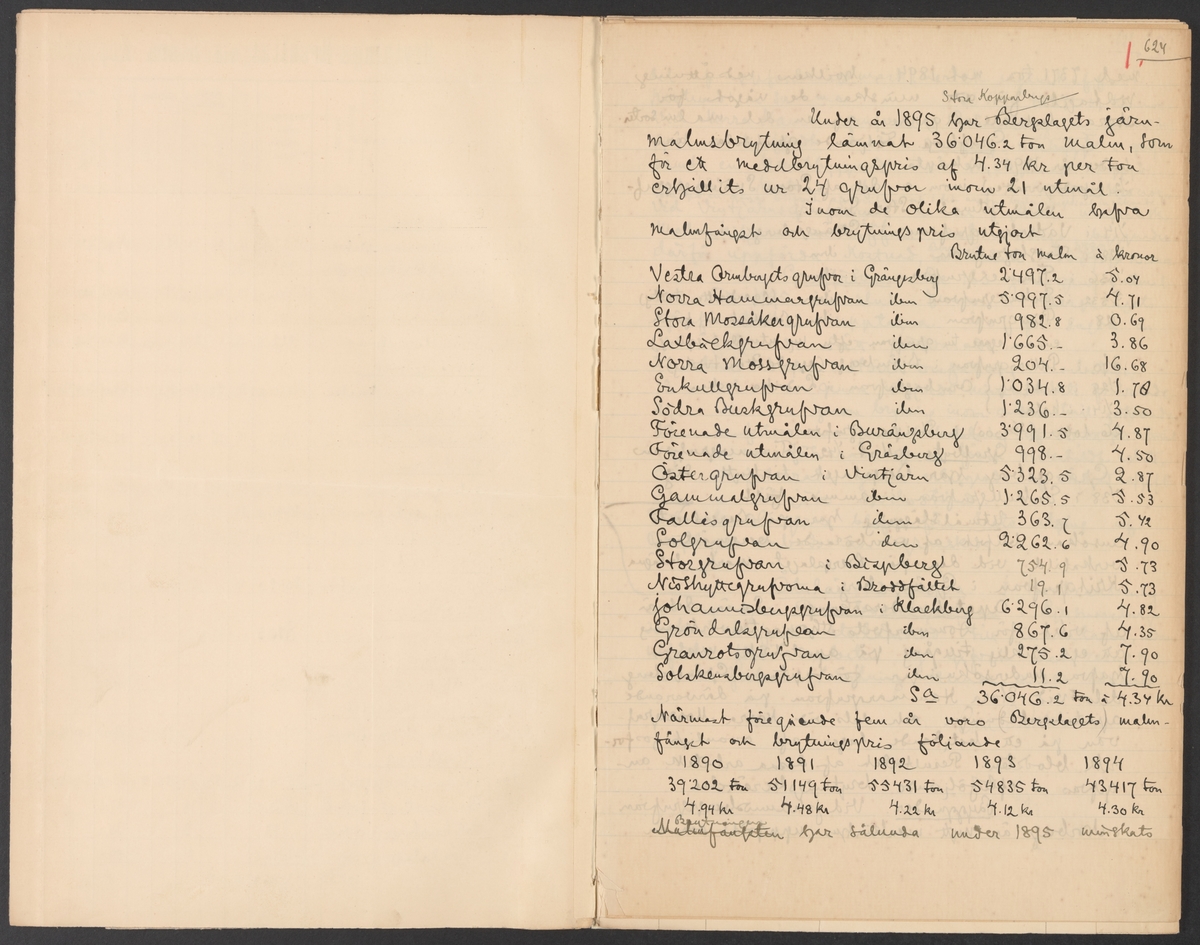 1. 624
Stora Kopparbergs
Under år 1895 har Bergslagets järn-
malmsbrytning lämnat 36'046.2 ton malm, som
för ett medelbrytningspris af 4.34 kr per ton
erhållits ur 24 grufvor inom 21 utmål.
Inom de olika utmålen hafva
malmfångst och brytningspris utgjort
Brutne ton malm à kronor
Vestra Ormbergsgrufvor i Grängesberg 2'497.2 5.04
Norra Hammargrufvan ibm 5'997.5 4.71
Stora Mossåkergrufvan ibm 982.8 0.69
Laxbäckgrufvan ibm 1'665.- 3.86
Norra Mossgrufvan ibm 204.- 16.68
Enkullgrufvan ibm 1'034.8 1.78
Södra Buskgrufvan ibm 1'236.- 3.50
Förenade utmålen i Burängsberg 3'991.5 4.87
Förenade utmålen i Gräsberg 998.- 4.50
Östergrufvan i Vintjärn 5'323.5 2.87
Gammalgrufvan ibm 1'265.5 5.53
Fallisgrufvan ibm 363.7 5.42
Solgrufvan ibm 2'262.6 4.90
Storgrufvan i Bispberg 754.9 5.73
Nöshyttegrufvorna i Broddfältet 19.1 5.73
Johannisbergsgrufvan i Klackberg 6'296.1 4.82
Gröndalsgrufvan ibm 867.6 4.35
Granrotsgrufvan ibm 275.2 7.90
Solskensbergsgrufvan ibm 11.2 7.90
Sa 36'046.2 ton à 4.34 kr
Närmast föregående fem år voro Bergslagets malm-
fångst och brytningspris följande
1890 1891 1892 1893 1894
39'202 ton 51149 ton 55431 ton 54835 ton 43417 ton
4.94 kr 4.48 kr 4.22 kr 4.12 kr 4.30 kr
Brytningen
Malmfångsten har sålunda under 1895 minskats